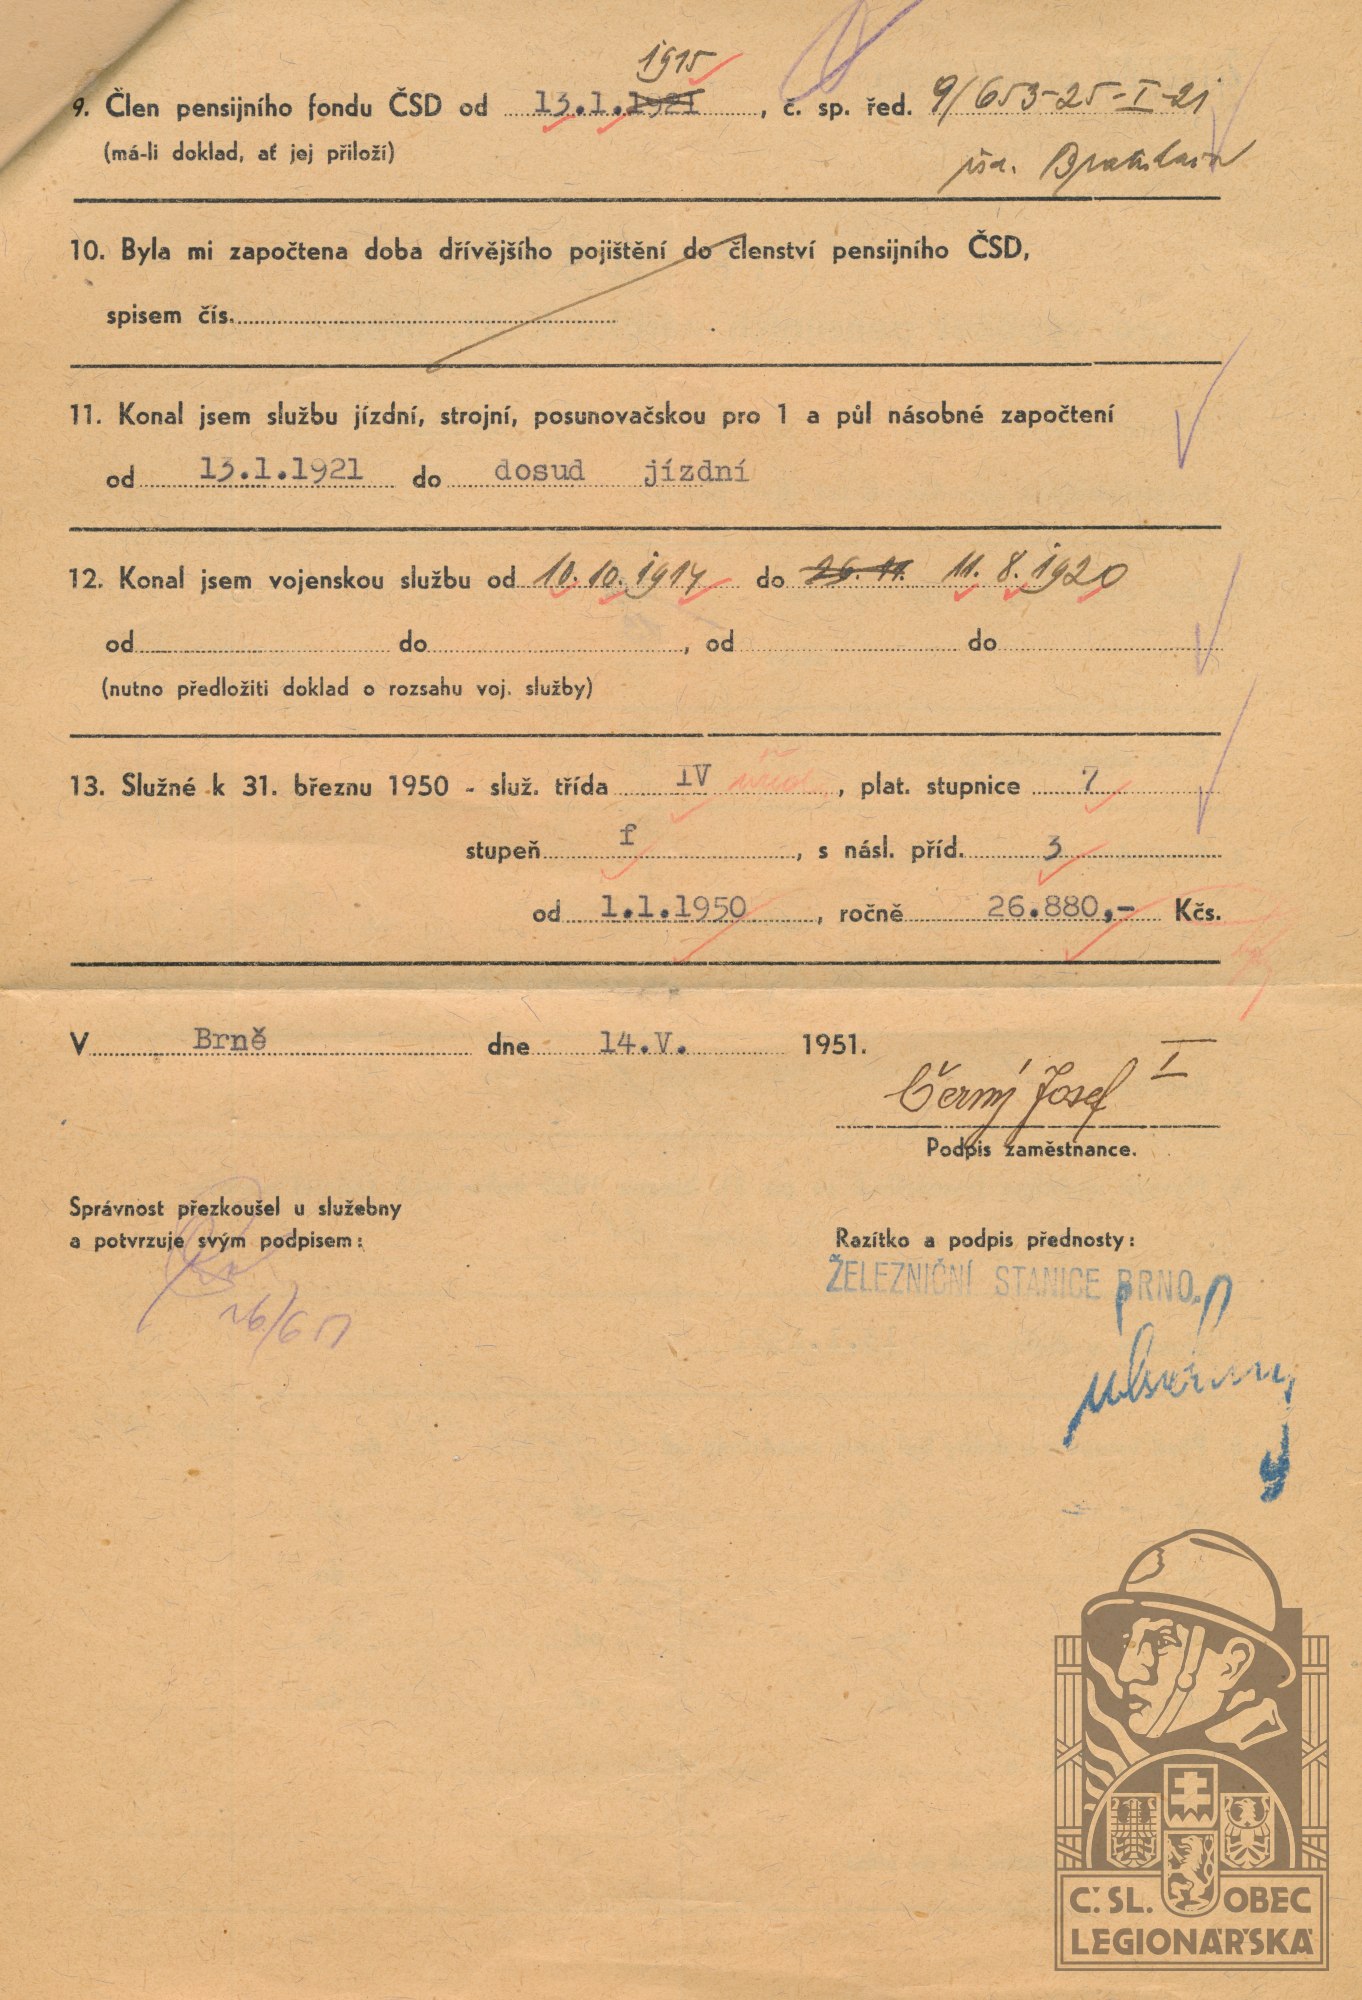 1915
9. Člen pensijního fondu ČSD od 13.1.1921, č. sp. řed. 9/653-25-I-21
(má-li doklad, ať jej přiloží)
Bratislava
10. Byla mi započtena doba dřívějšího pojištění do členství pensijního ČSD,
spisem čís.
11. Konal jsem službu jízdní, strojní, posunovačskou pro 1 a půl násobné započtení
od 13.1.1921 do dosud jízdní
12. Konal jsem vojenskou službu od 10.10.1914 do 26.11. 11.8.1920
od do , od do
(nutno předložiti doklad o rozsahu voj. služby)
13. Služné k 31. březnu 1950 - služ. třída IV , plat. stupnice 7
stupeň f , s násl. příd. 3
od 1.1.1950 , ročně 26.880,- Kčs.
V Brně dne 14.V. 1951.
Černý Josef I
Podpis zaměstnance.
Správnost přezkoušel u služebny
a potvrzuje svým podpisem:
Razítko a podpis přednosty:
ŽELEZNIČNÍ STANICE BRNO.
Č.SL. OBEC
LEGIONÁŘSKÁ